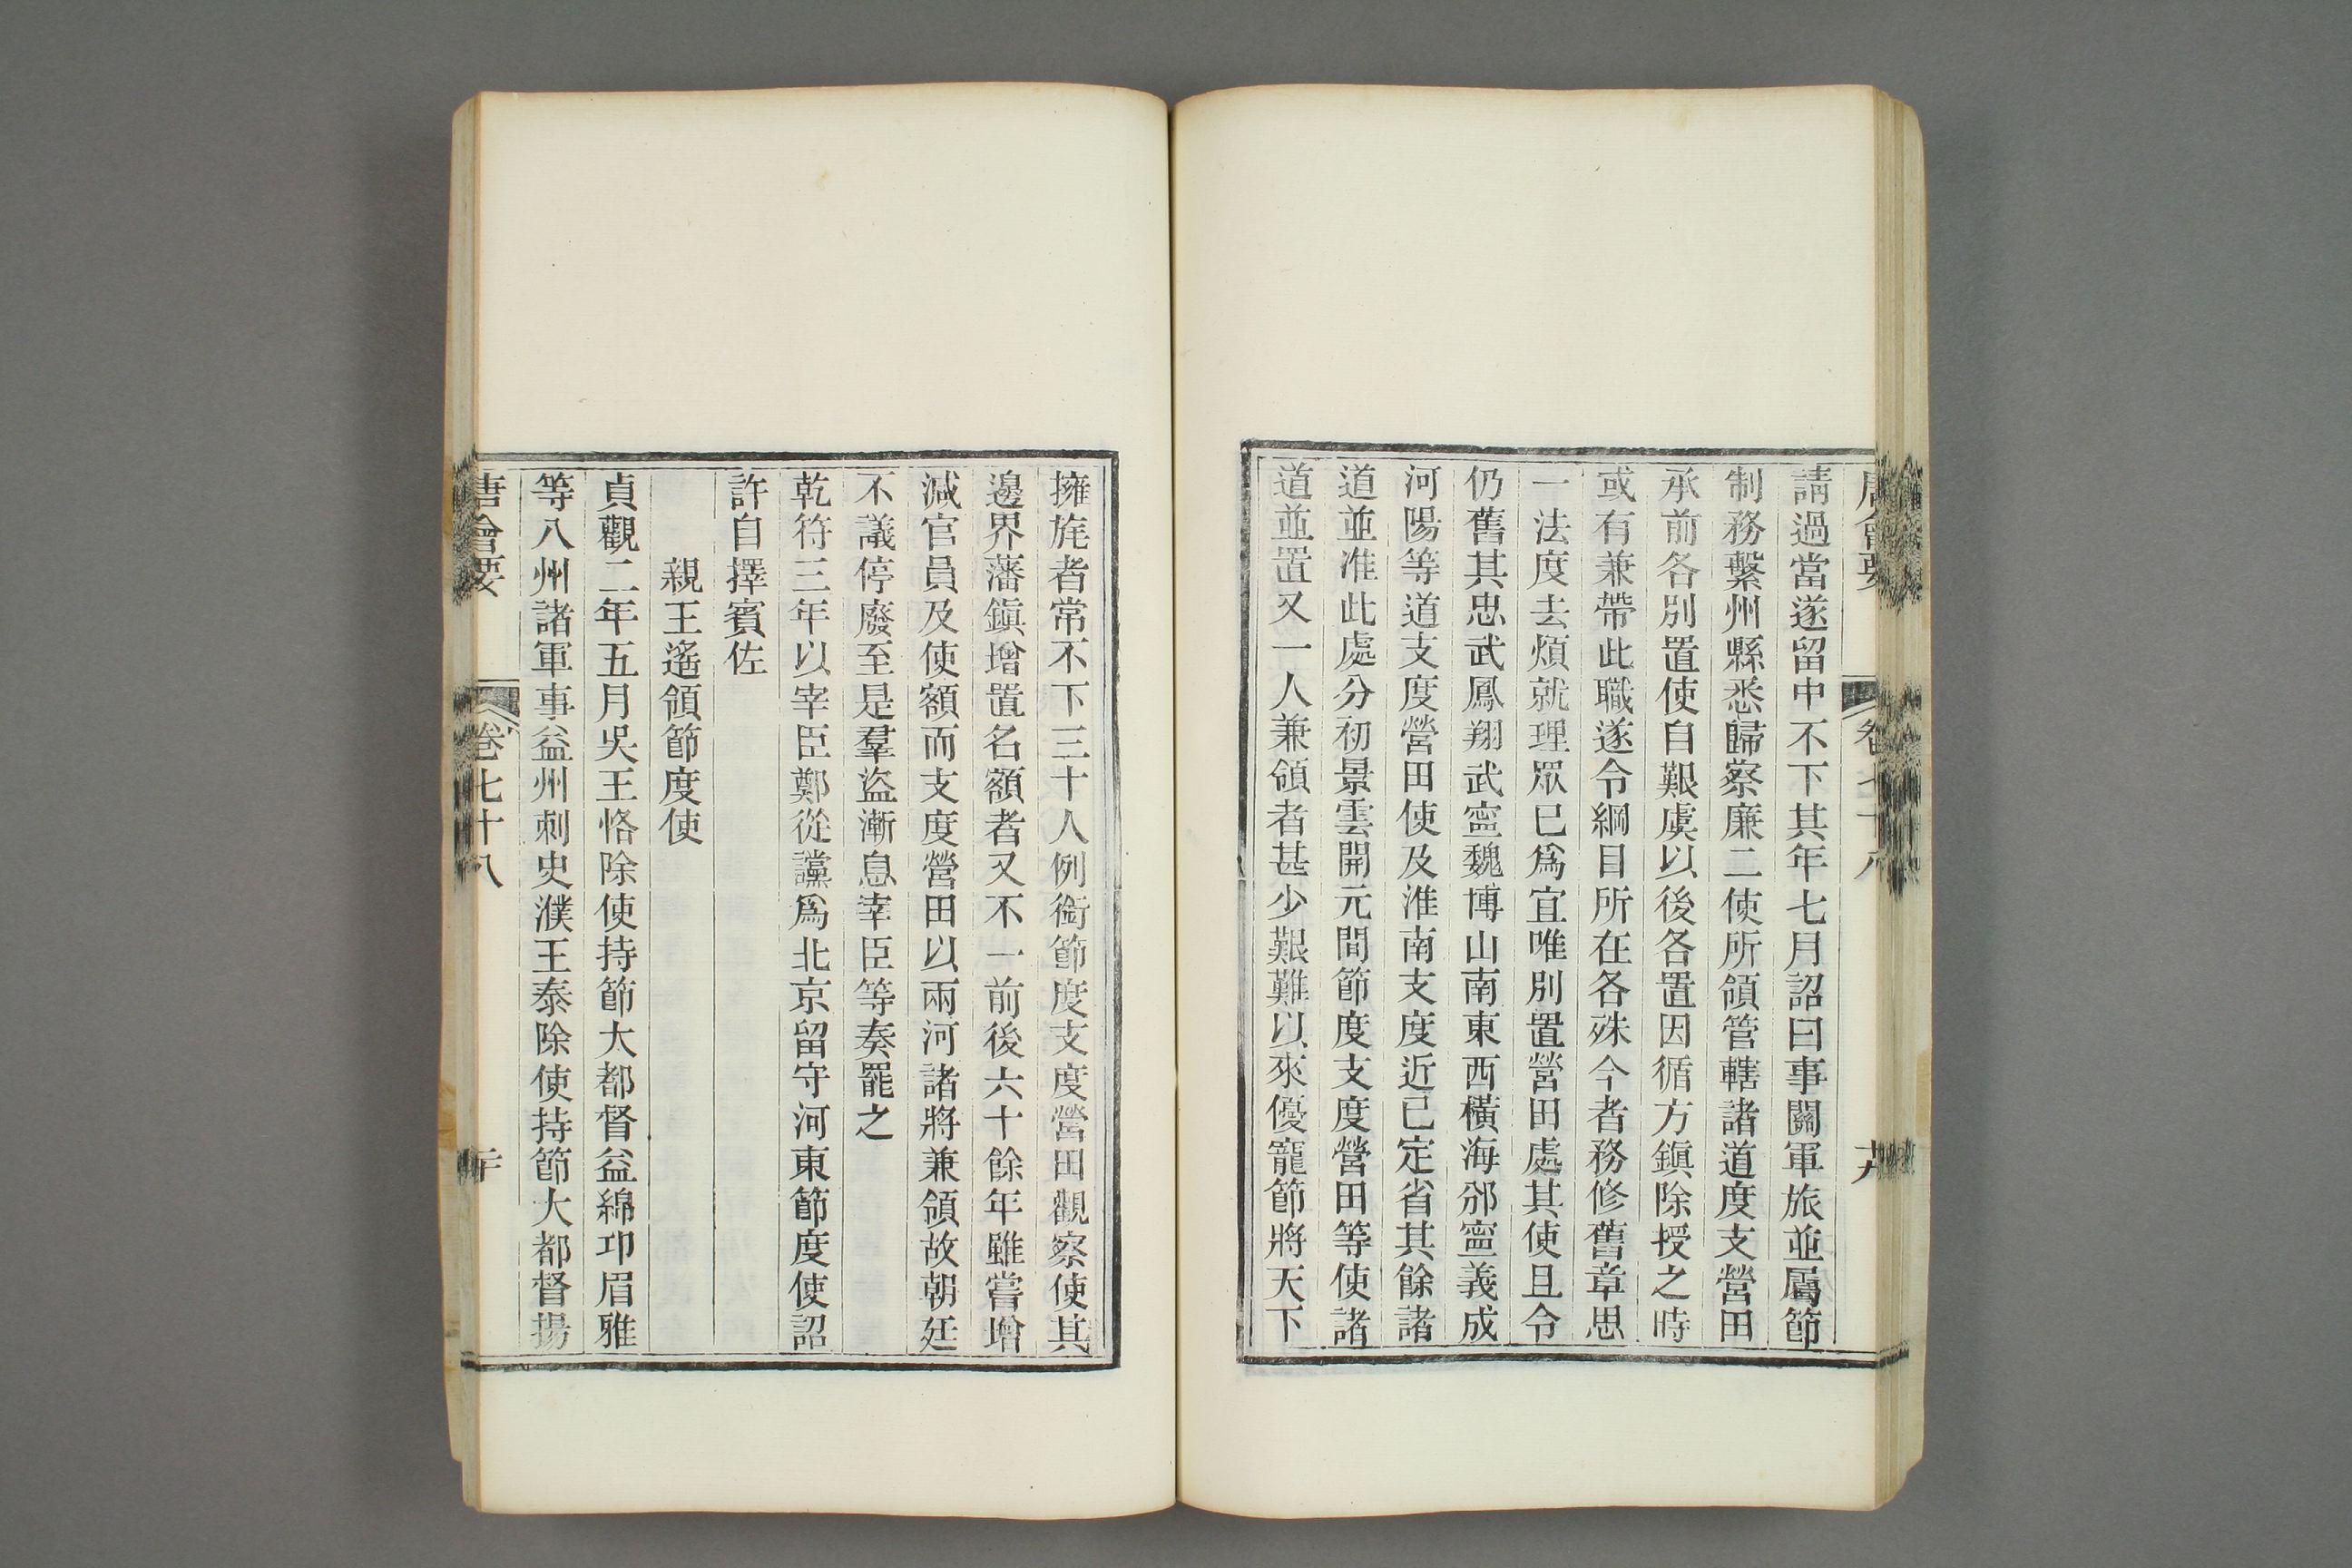 唐會要 卷七十八 十九
請過當遂留中不下其年七月詔曰事關軍旅並屬節
制務繫州縣悉歸察廉二使所領管轄諸道度支營田
承前各別置使自艱虞以後各置因循方鎮除授之時
或有兼帶此職遂令綱目所在各殊今者務修舊章思
一法度去煩就理眾已爲宜唯別置營田處其使且令
仍舊其忠武鳳翔武寧魏博山南東西橫海邠寧義成
河陽等道支度營田使及淮南支度近已定省其餘諸
道並准此處分初景雲開元間節度支度營田等使諸
道並置又一人兼領者甚少艱難以來優寵節將天下
擁旄者常不下三十人例銜節度支度營田觀察使其
邊界藩鎮增置名額者又不一前後六十餘年雖嘗增
減官員及使額而支度營田以兩河諸將兼領故朝廷
不議停廢至是羣盜漸息宰臣等奏罷之
乾符三年以宰臣鄭從讜爲北京留守河東節度使詔
許自擇賓佐
親王遙領節度使
貞觀二年五月吳王恪除使持節大都督益綿邛眉雅
等八州諸軍事益州刺史濮王泰除使持節大都督揚
唐會要 卷七十八 二十